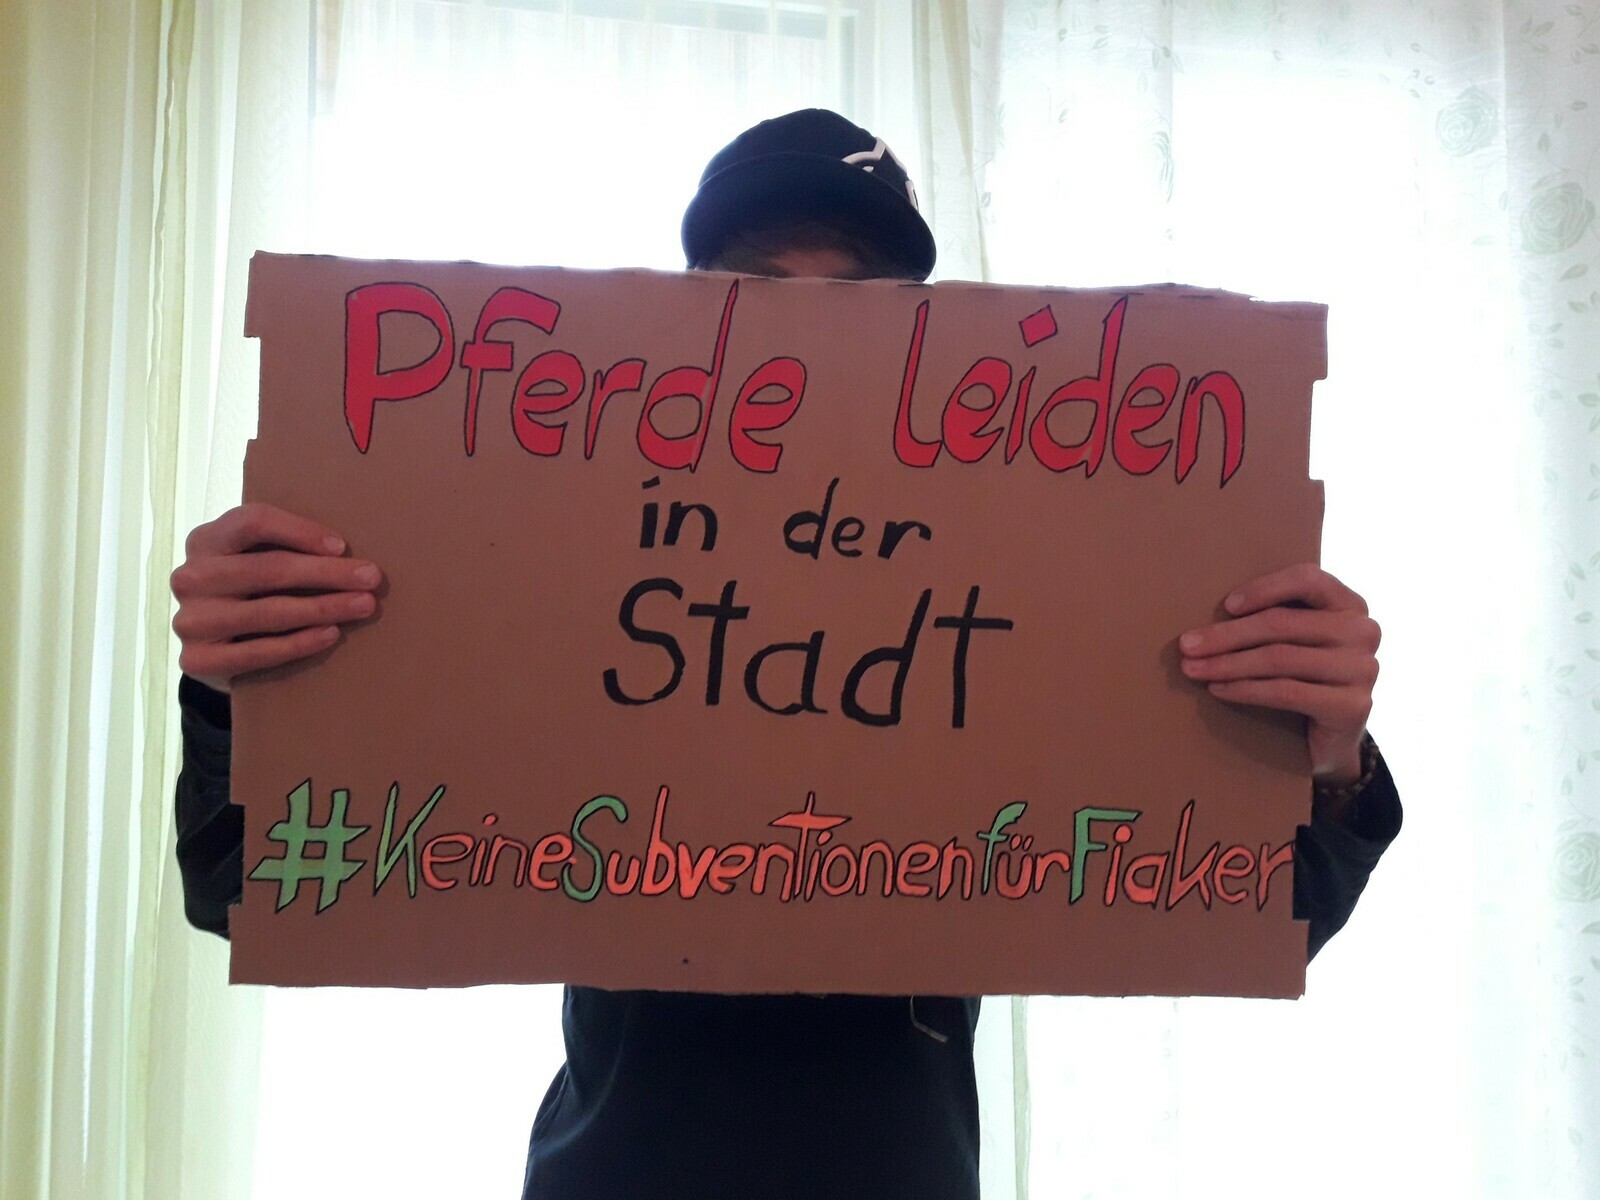 Pferde leiden
in der
Stadt
#KeineSubventionenfürFiaker